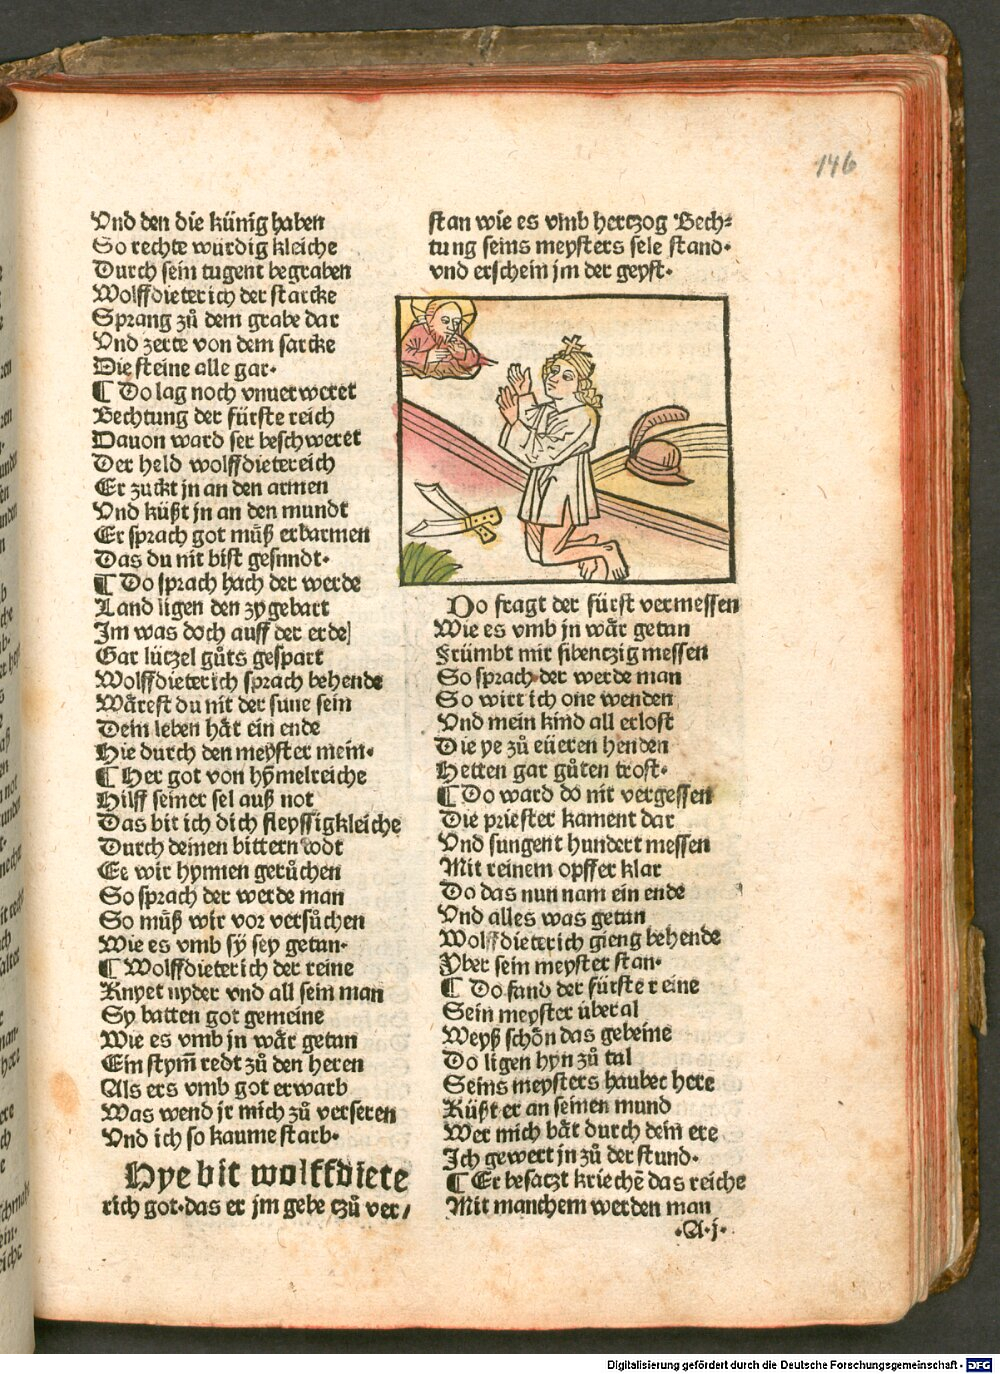 146
Vnd den die künig haben
So rechte würdig kleiche
Durch sein tugent begraben
Wolffdieterich der starcke
Sprang zů dem grabe dar
Vnd zerte von dem sarcke
Die steine alle gar.
¶ Do lag noch vnuerweret
Bechtung der fürste reich
Dauon ward ser beschweret
Der held wolffdietereich
Er zuckt jn an den armen
Vnd küßt jn an den mundt
Er sprach got můß erbarmen
Das du nit bist gesnndt.
¶ Do sprach hach der werde
Land ligen den zygebart
Im was doch auff der erde
Gar lützel gůts gespart
Wolffdieterich sprach behende
Wärest du nit der sune sein
Dein leben hät ein ende
Hie durch den meyster mein.
¶ Her got von hymelreiche
Hilff seiner sel auß not
Das bit ich dich fleyssigkleiche
Durch deinen bittern todt
Ee wir hynnen gerůchen
So sprach der werde man
So můß wir vor versůchen
Wie es vmb sy sey getan.
¶ Wolffdieterich der reine
Knyet nyder vnd all sein man
Sy batten got gemeine
Wie es vmb jn wär getan
Ein stym̄ redt zů den heren
Als ers vmb got erwarb
Was wend jr mich zů verseren
Vnd ich so kaume starb.
Hye bit wolffdiete
rich got.das er jm gebe czů ver/
stan wie es vmb hertzog Bech⸗
tung seins meysters sele stand.
vnd erschein jm der geyst.
Do fragt der fürst vermessen
Wie es vmb jn wär getan
Frümbt mir sibentzig messen
So sprach der werde man
So wirt ich one wenden
Vnd mein kind all erlost
Die ye zů eüeren henden
Hetten gar gůten trost.
¶ Do ward do nit vergessen
Die priester kament dar
Vnd sungent hundert messen
Mit reinem opffer klar
Do das nun nam ein ende
Vnd alles was getan
Wolffdieterich gieng behende
Yber sein meyster stan.
¶ Do fand der fürste reine
Sein meyster über al
Weyß schön das gebeine
Do ligen hyn zů tal
Seins meysters haubet here
Küßt er an seinen mund
Wer mich bät durch dein ere
Ich gewert jn zů der stund.
¶ Er besatzt kriechē das reiche
Mit manchem werden man
.A.j.
Digitalisierung gefördert durch die Deutsche Forschungsgemeinschaft - DFG